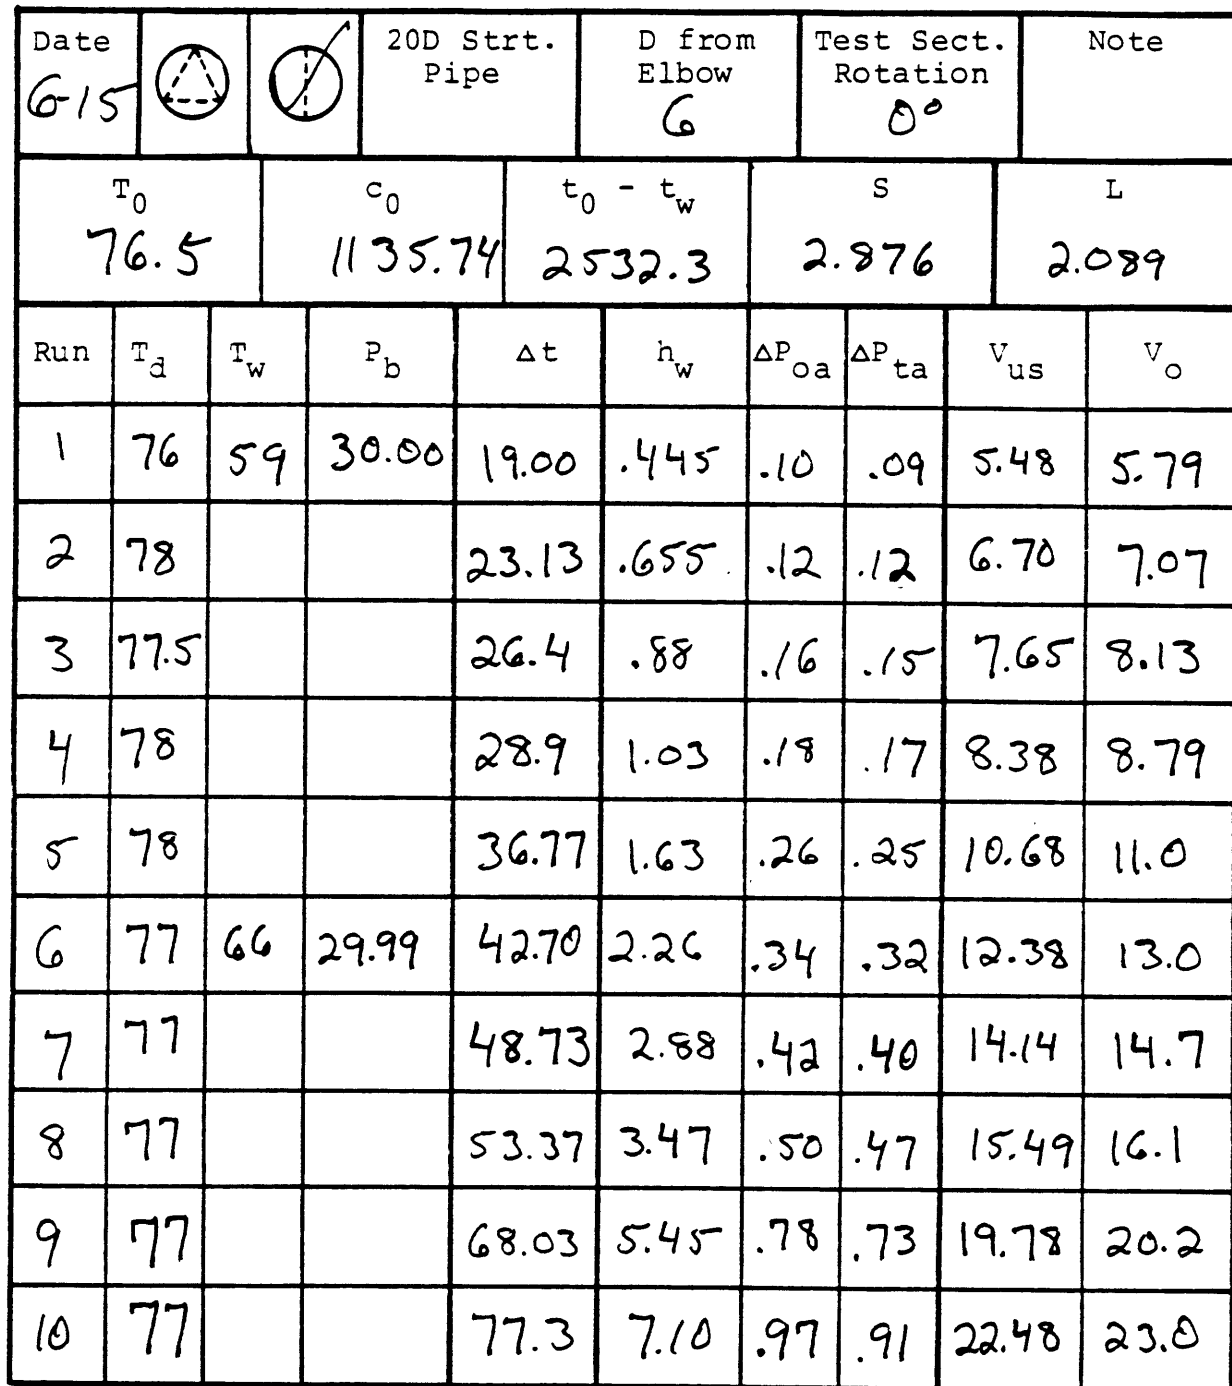 Date 20D Strt. D from Test Sect. Note
Pipe Elbow Rotation
6-15 6 0°
T0 c0 t0 - tw S L
76.5 1135.74 2532.3 2.876 2.089
Run Td Tw Pb Δt hw ΔPoa ΔPta Vus Vo
1 76 59 30.00 19.00 .445 .10 .09 5.48 5.79
2 78 23.13 .655 .12 .12 6.70 7.07
3 77.5 26.4 .88 .16 .15 7.65 8.13
4 78 28.9 1.03 .18 .17 8.38 8.79
5 78 36.77 1.63 .26 .25 10.68 11.0
6 77 66 29.99 42.70 2.26 .34 .32 12.38 13.0
7 77 48.73 2.88 .42 .40 14.14 14.7
8 77 53.37 3.47 .50 .47 15.49 16.1
9 77 68.03 5.45 .78 .73 19.78 20.2
10 77 77.3 7.10 .97 .91 22.48 23.0